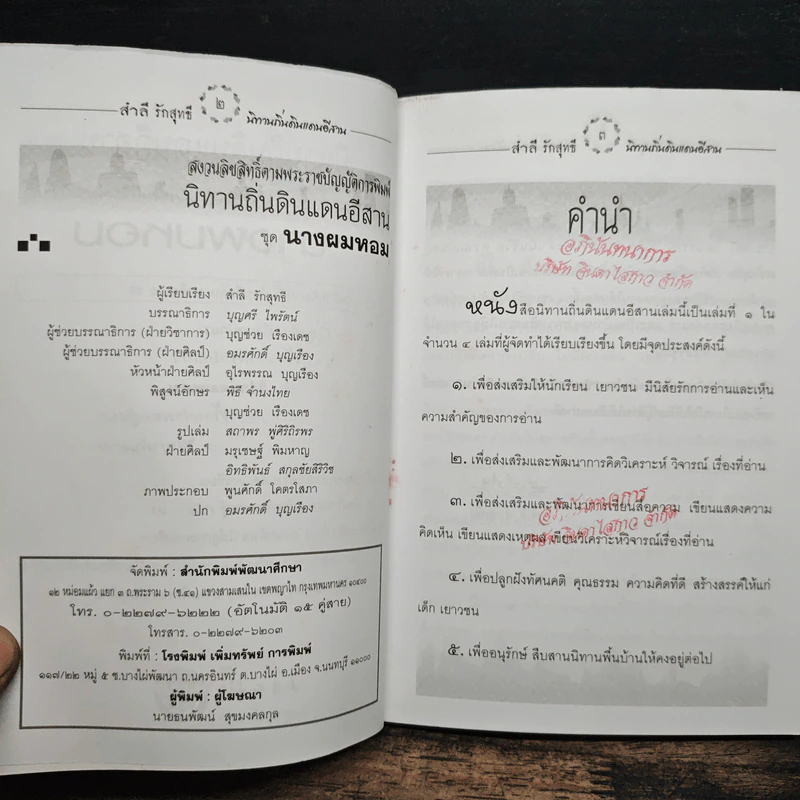 สำลี รักสุทธี ๒ นิทานถิ่นดินแดนอีสาน
สงวนลิขสิทธิ์ตามพระราชบัญญัติการพิมพ์
นิทานถิ่นดินแดนอีสาน
ชุด นางผมหอม
ผู้เรียบเรียง สำลี รักสุทธี
บรรณาธิการ บุญศรี ไพรัตน์
ผู้ช่วยบรรณาธิการ (ฝ่ายวิชาการ) บุญช่วย เรืองเดช
ผู้ช่วยบรรณาธิการ (ฝ่ายศิลป์) อมรศักดิ์ บุญเรือง
หัวหน้าฝ่ายศิลป์ อุไรพรรณ บุญเรือง
พิสูจน์อักษร พิธี จำนงไทย
บุญช่วย เรืองเดช
รูปเล่ม สถาพร พู่ศิริถิรพร
ฝ่ายศิลป์ มรุเชษฐ์ พิมหาญ
อิทธิพันธ์ สกุลชัยสิริวิช
ภาพประกอบ พูนศักดิ์ โคตรโสภา
ปก อมรศักดิ์ บุญเรือง
จัดพิมพ์ : สำนักพิมพ์พัฒนาศึกษา
๑๒ หม่อมแผ้ว แยก ๓ ถ.พระราม ๖ (ซ.๔๑) แขวงสามเสนใน เขตพญาไท กรุงเทพมหานคร ๑๐๔๐๐
โทร. ๐-๒๒๗๙-๖๒๒๒ (อัตโนมัติ ๑๕ คู่สาย)
โทรสาร. ๐-๒๒๗๙-๖๒๐๓
พิมพ์ที่ : โรงพิมพ์ เพิ่มทรัพย์ การพิมพ์
๑๑๗/๒๒ หมู่ ๕ ซ.บางไผ่พัฒนา ถ.นครอินทร์ ต.บางไผ่ อ.เมือง จ.นนทบุรี ๑๑๐๐๐
ผู้พิมพ์ : ผู้โฆษณา
นายธนพัฒน์ สุขมงคลกุล
สำลี รักสุทธี ๓ นิทานถิ่นดินแดนอีสาน
คำนำ
อภินันทนาการ
บริษัท จินดาไสกาว จำกัด
หนังสือนิทานถิ่นดินแดนอีสานเล่มนี้เป็นเล่มที่ ๑ ใน
จำนวน ๔ เล่มที่ผู้จัดทำได้เรียบเรียงขึ้น โดยมีจุดประสงค์ดังนี้
๑. เพื่อส่งเสริมให้นักเรียน เยาวชน มีนิสัยรักการอ่านและเห็น
ความสำคัญของการอ่าน
๒. เพื่อส่งเสริมและพัฒนาการคิดวิเคราะห์ วิจารณ์ เรื่องที่อ่าน
๓. เพื่อส่งเสริมและพัฒนาการเขียนสื่อความ เขียนแสดงความ
คิดเห็น เขียนแสดงเหตุผล เขียนวิเคราะห์วิจารณ์เรื่องที่อ่าน
๔. เพื่อปลูกฝังทัศนคติ คุณธรรม ความคิดที่ดี สร้างสรรค์ให้แก่
เด็ก เยาวชน
๕. เพื่ออนุรักษ์ สืบสานนิทานพื้นบ้านให้คงอยู่ต่อไป